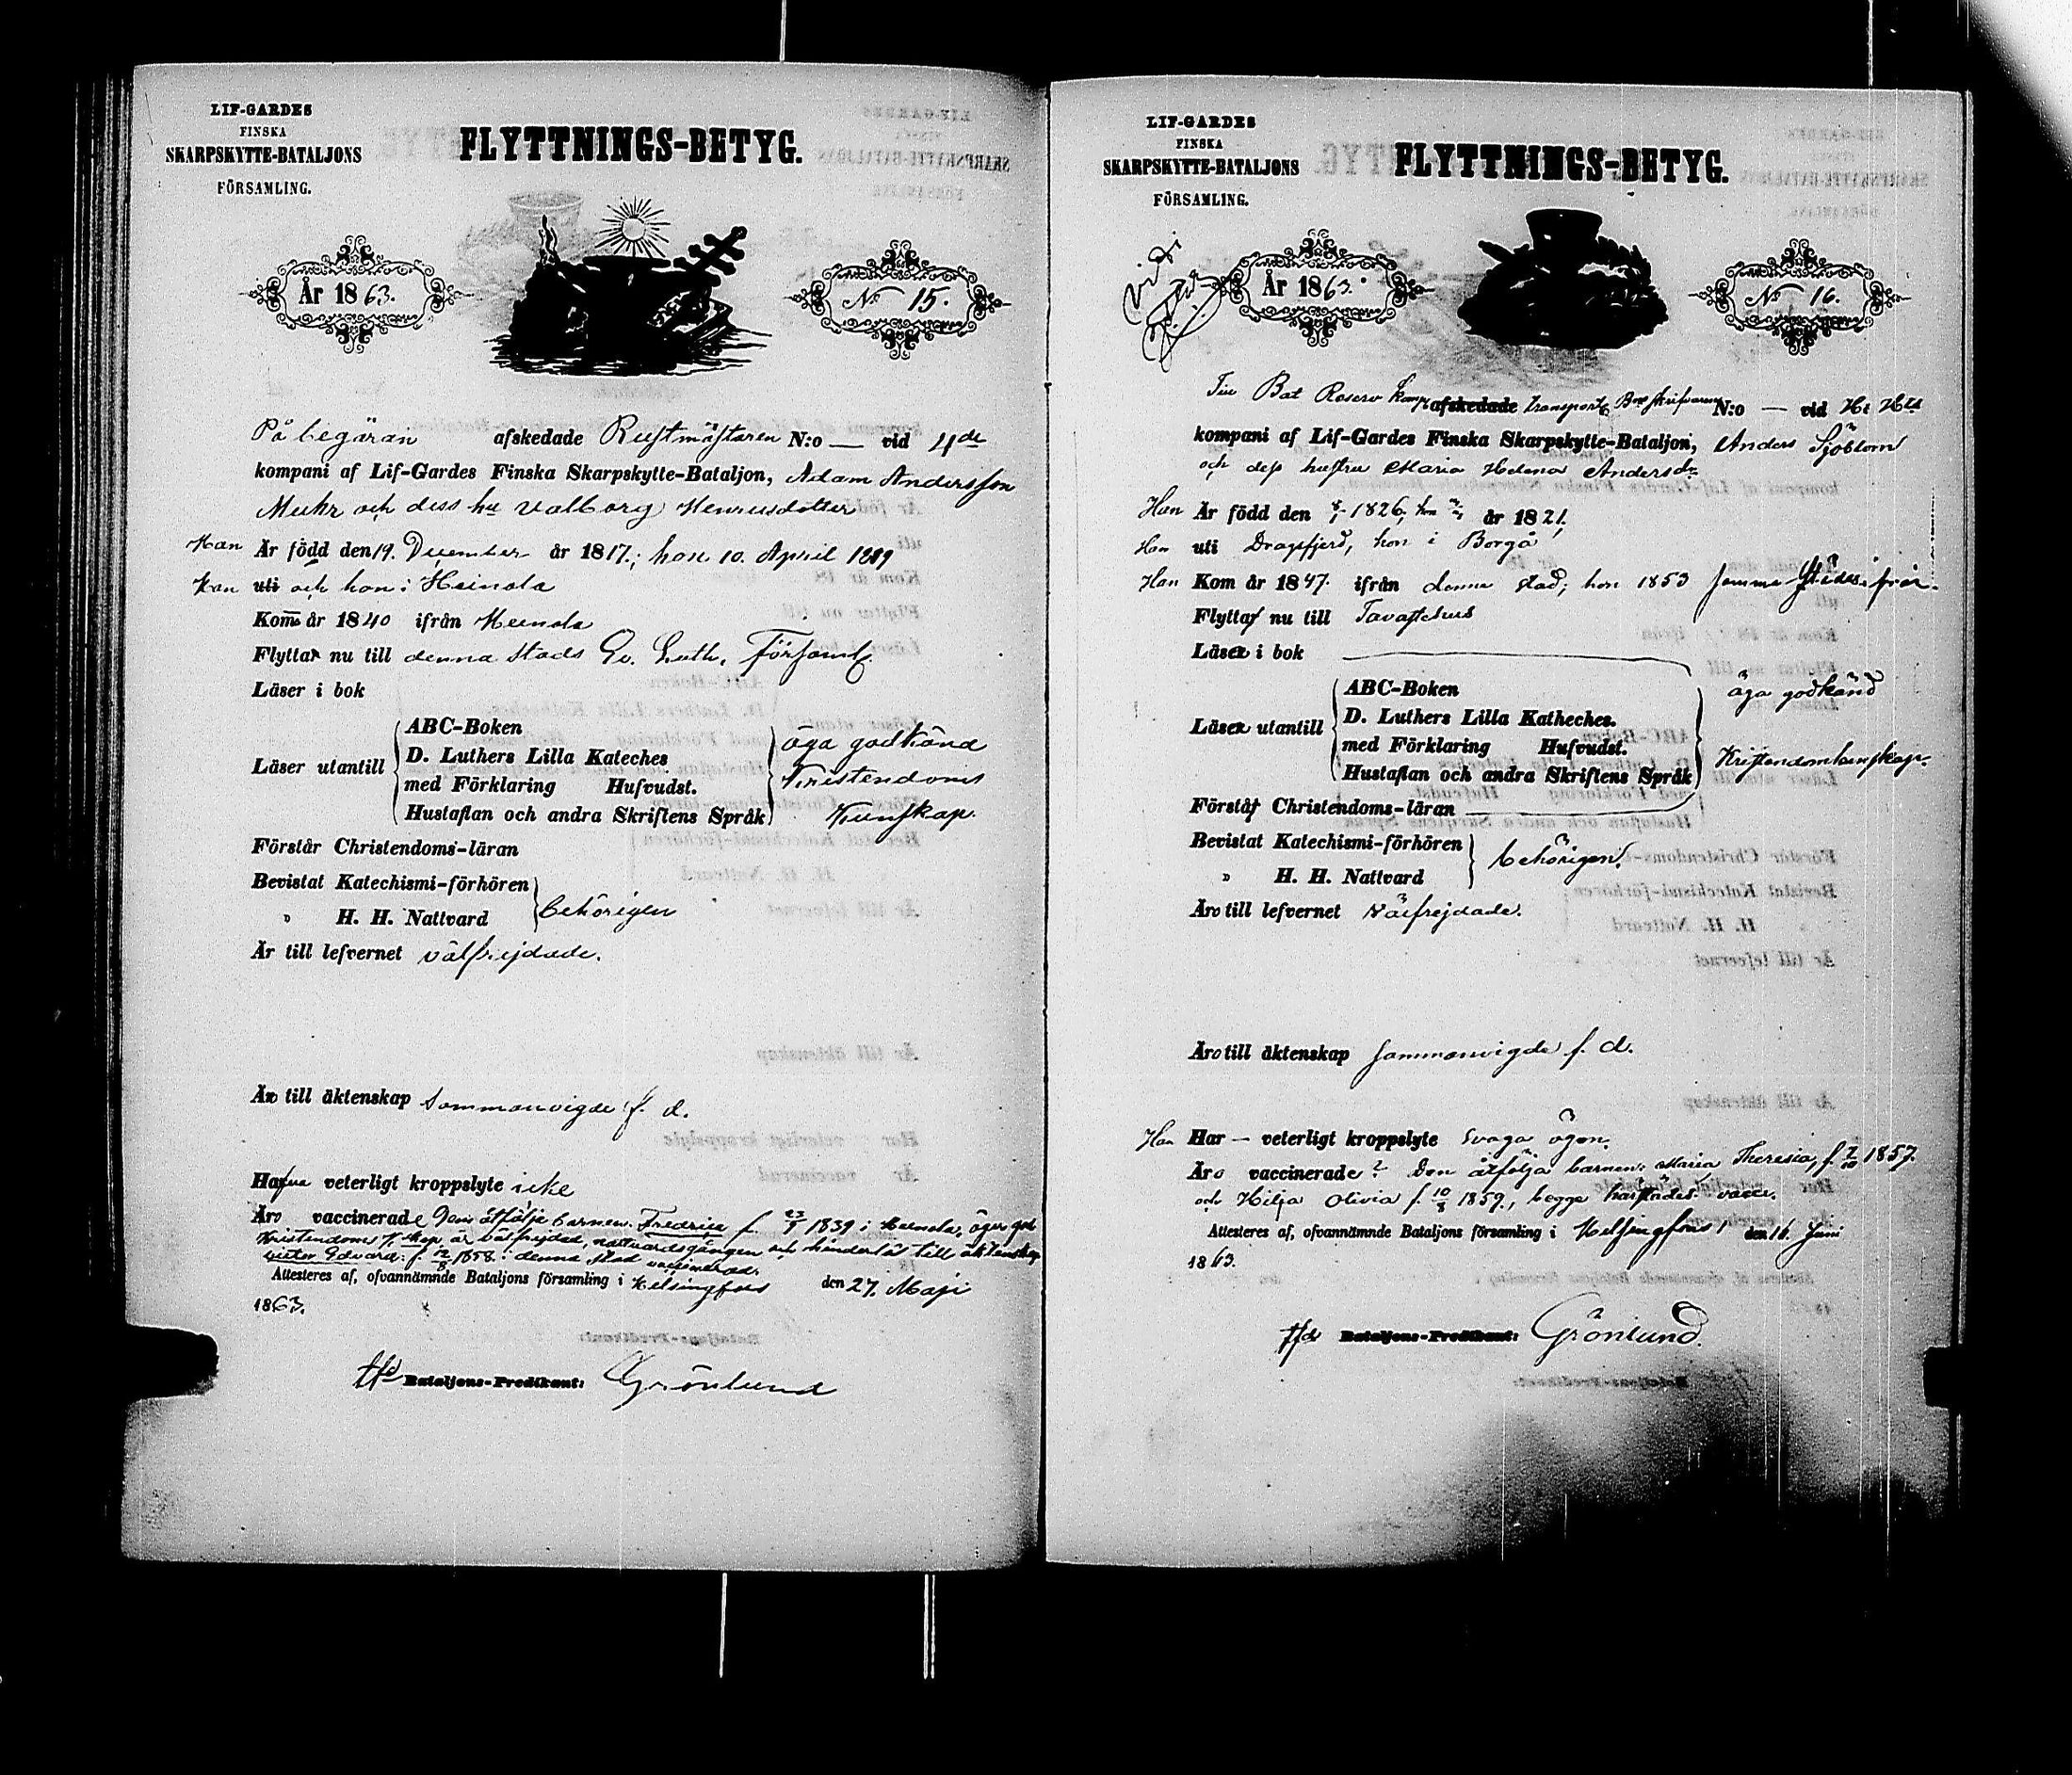 LIF-GARDES
FINSKA
SKARPSKYTTE-BATALJONS
FÖRSAMLING.
FLYTTNINGS-BETYG.
År 1863.
No 15.
På begäran afskedade Rustmästaren N:o — vid 4de
kompani af Lif-Gardes Finska Skarpskytte-Bataljon, Adam Andersson
Muhr och dess hu Valborg Henriksdotter
Han Är född den 19. December år 1817.; hon 10. April 1819
Han uti och hon i Heinola
Kom år 1840 ifrån Heinola
Flytta nu till denna Stads Ev. Luth. Församl.
Läser i bok
Läser utantill
ABC-Boken
D. Luthers Lilla Kateches
med Förklaring Hufvudst.
Hustaflan och andra Skriftens Språk
äga godkänd
Kristendoms
Kunskap.
Förstår Christendoms-läran
Bevistat Katechismi-förhören
" H. H. Nattvard
behörigen
Är till lefvernet välfrejdade.
Äro till äktenskap Sammanvigde f. d.
Hafva veterligt kroppslyte icke
Äro vaccinerade Dem åtfölja barnen: Fredrica f. 23/9 1839 i Heinola, äger god
Kristendoms k.skap är välfrejdad, nattvardsgången och hinderlös till äktenskap
Victor Edvard: f. 12/8 1858 i denna stad vaccinerad.
Attesteres af, ofvannämnde Bataljons församling i Helsingfors den 27. Maji
1863.
tfd Bataljons-Predikant: Grönlund
LIF-GARDES
FINSKA
SKARPSKYTTE-BATALJONS
FÖRSAMLING.
FLYTTNINGS-BETYG.
Vidi
År 1863.
No 16.
Bat Reserv Komp afskedade transport N:o — vid
kompani af Lif-Gardes Finska Skarpskytte-Bataljon, Anders Sjöblom
och dess hustru Maria Helena Andersdr
Han Är född den 1826, hon år 1821.
Han uti Dragsfjerd, hon i Borgå
Han Kom år 1847. ifrån denna stad; hon 1853 samma städes ifrån.
Flytta nu till Tavastehus
Läser i bok
Läser utantill
ABC-Boken
D. Luthers Lilla Katheches.
med Förklaring Hufvudst.
Hustaflan och andra Skriftens Språk
äga godkänd
Kristendomskunskap.
Förstå Christendoms-läran
Bevistat Katechismi-förhören
" H. H. Nattvard
behörigen.
Äro till lefvernet välfrejdade.
Äro till äktenskap Sammanvigde f. d.
Han Har — veterligt kroppslyte svaga ögon.
Äro vaccinerade? Dem åtfölja barnen: Maria Theresia, f. 7/10 1857.
och Hilja Olivia f. 10/8 1859., begge härstädes vacc.
Attesteres af, ofvannämnde Bataljons församling i Helsingfors den 16 Juni
1863.
tfd Bataljons-Predikant: Grönlund.